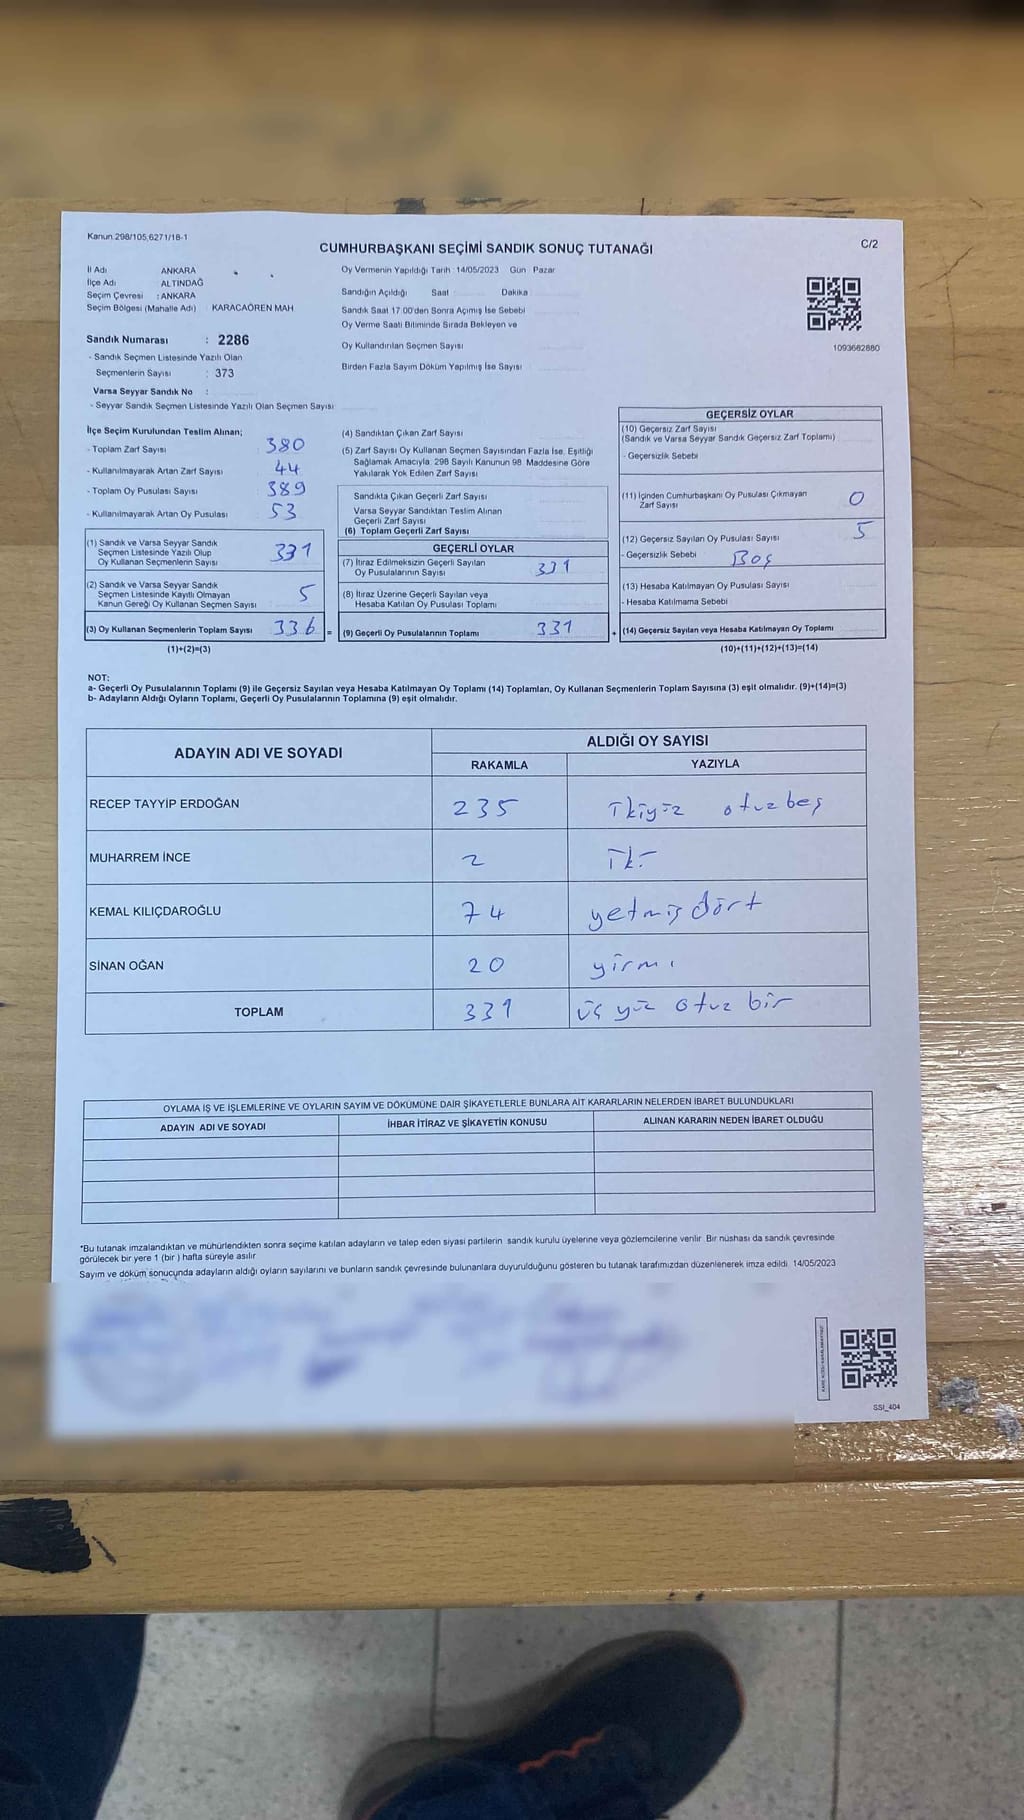 Kanun 298/105,6271/18-1
C/2
CUMHURBAŞKANI SEÇİMİ SANDIK SONUÇ TUTANAĞI
İl Adı ANKARA
İlçe Adı ALTINDAĞ
Seçim Çevresi : ANKARA
Seçim Bölgesi (Mahalle Adı) KARACAÖREN MAH
Sandık Numarası : 2286
- Sandık Seçmen Listesinde Yazılı Olan
Seçmenlerin Sayısı : 373
Varsa Seyyar Sandık No :
- Seyyar Sandık Seçmen Listesinde Yazılı Olan Seçmen Sayısı
Oy Vermenin Yapıldığı Tarih 14/05/2023 Gün Pazar
Sandığın Açıldığı Saat Dakika
Sandık Saat 17 00'den Sonra Açımış İse Sebebi
Oy Verme Saati Bitiminde Sırada Bekleyen ve
Oy Kullandırılan Seçmen Sayısı
Birden Fazla Sayım Döküm Yapılmış İse Sayısı
1093662880
İlçe Seçim Kurulundan Teslim Alınan;
- Toplam Zarf Sayısı 380
- Kullanılmayarak Artan Zarf Sayısı 44
- Toplam Oy Pusulası Sayısı 389
- Kullanılmayarak Artan Oy Pusulası 53
(1) Sandık ve Varsa Seyyar Sandık
Seçmen Listesinde Yazılı Olup
Oy Kullanan Seçmenlerin Sayısı 331
(2) Sandık ve Varsa Seyyar Sandık
Seçmen Listesinde Kayıtlı Olmayan
Kanun Gereği Oy Kullanan Seçmen Sayısı 5
(3) Oy Kullanan Seçmenlerin Toplam Sayısı 336 =
(1)+(2)=(3)
(4) Sandıktan Çıkan Zarf Sayısı
(5) Zarf Sayısı Oy Kullanan Seçmen Sayısından Fazla İse, Eşitliği
Sağlamak Amacıyla, 298 Sayılı Kanunun 98. Maddesine Göre
Yakılarak Yok Edilen Zarf Sayısı
Sandıkta Çıkan Geçerli Zarf Sayısı
Varsa Seyyar Sandıktan Teslim Alınan
Geçerli Zarf Sayısı
(6) Toplam Geçerli Zarf Sayısı
GEÇERLİ OYLAR
(7) İtiraz Edilmeksizin Geçerli Sayılan
Oy Pusulalarının Sayısı 331
(8) İtiraz Üzerine Geçerli Sayılan veya
Hesaba Katılan Oy Pusulası Toplamı
(9) Geçerli Oy Pusulalarının Toplamı 331 +
GEÇERSİZ OYLAR
(10) Geçersiz Zarf Sayısı
(Sandık ve Varsa Seyyar Sandık Geçersiz Zarf Toplamı)
- Geçersizlik Sebebi
(11) İçinden Cumhurbaşkanı Oy Pusulası Çıkmayan
Zarf Sayısı 0
(12) Geçersiz Sayılan Oy Pusulası Sayısı 5
- Geçersizlik Sebebi Boş
(13) Hesaba Katılmayan Oy Pusulası Sayısı
- Hesaba Katılmama Sebebi
(14) Geçersiz Sayılan veya Hesaba Katılmayan Oy Toplamı
(10)+(11)+(12)+(13)=(14)
NOT:
a- Geçerli Oy Pusulalarının Toplamı (9) ile Geçersiz Sayılan veya Hesaba Katılmayan Oy Toplamı (14) Toplamları, Oy Kullanan Seçmenlerin Toplam Sayısına (3) eşit olmalıdır. (9)+(14)=(3)
b- Adayların Aldığı Oyların Toplamı, Geçerli Oy Pusulalarının Toplamına (9) eşit olmalıdır.
ADAYIN ADI VE SOYADI
ALDIĞI OY SAYISI
RAKAMLA YAZIYLA
RECEP TAYYİP ERDOĞAN 235 İkiyüz otuzbeş
MUHARREM İNCE 2 İki
KEMAL KILIÇDAROĞLU 74 yetmiş dört
SİNAN OĞAN 20 yirmi
TOPLAM 331 üç yüz otuz bir
OYLAMA İŞ VE İŞLEMLERİNE VE OYLARIN SAYIM VE DÖKÜMÜNE DAİR ŞİKAYETLERLE BUNLARA AİT KARARLARIN NELERDEN İBARET BULUNDUKLARI
ADAYIN ADI VE SOYADI İHBAR İTİRAZ VE ŞİKAYETİN KONUSU ALINAN KARARIN NEDEN İBARET OLDUĞU
*Bu tutanak imzalandıktan ve mühürlendikten sonra seçime katılan adayların ve talep eden siyasi partilerin sandık kurulu üyelerine veya gözlemcilerine verilir Bir nüshası da sandık çevresinde
görülecek bir yere 1 (bir ) hafta süreyle asılır
Sayım ve döküm sonucunda adayların aldığı oyların sayılarını ve bunların sandık çevresinde bulunanlara duyurulduğunu gösteren bu tutanak tarafımızdan düzenlenerek imza edildi 14/05/2023
SSI_404